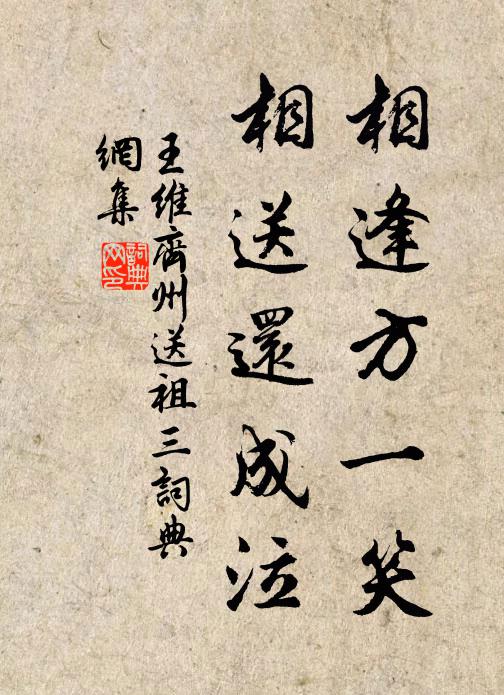 相逢方一笑
相送還成泣
王維齊州送祖三詞典
網集
詞典
网印